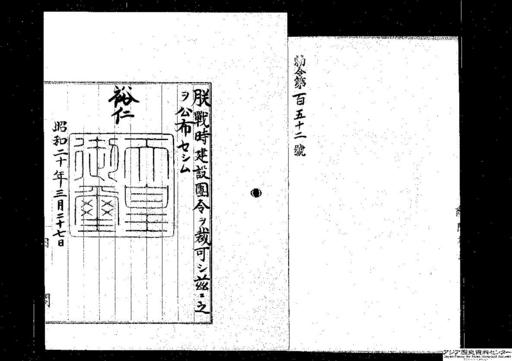 勅令第百五十二號
朕戰時建設團令ヲ裁可シ茲ニ之
ヲ公布セシム
裕仁
天皇御璽
昭和二十年三月二十七日
内閣
アジア歴史資料センター